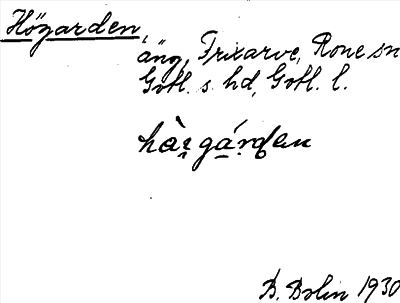 Högarden,
äng, Frixarve, Rone sn
Gotl. s. hd, Gotl. l.
D. Bolin 1930